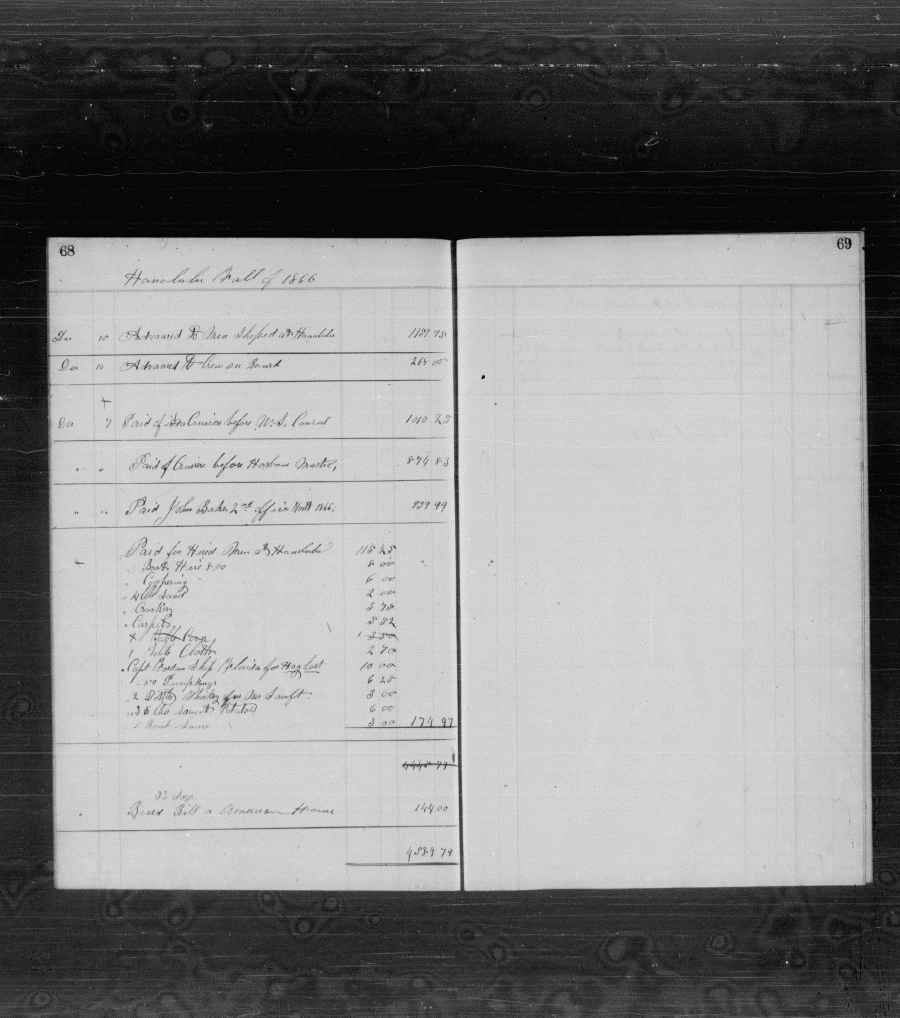 68
Honolulu Fall of 1866
Dec 10 Advanced To Men Shiped at Honolulu 1137 75
Dec 10 Advanced To Crew on Board 268 00
+
Dec 7 Paid of Cruisers before U.S. Consul 1010 25
" " Paid of Cruisers before Harbour Master, 874 83
" " Paid John Baker 2nd officer North 1866. 939 99
+ Paid for Hired Men at Honolulu 115 25
" Boat Hire 8.00 8 00
" Coopering " 6 00
" Sand 2 00
" Crockery 3 75
" Carpet
+
1 Cloth 2 70
" Capt Fordam Ship Florida for Hog lost 10 00
" 50 Pumpkings 6 25
" 2 Bottles Whiskey for Mr Swift 3 00
" Sweet Potatoes 6 00
" 1 Boat 3 00 174 97
4445 79
Board Bill a American House 144 00
4589 79
69